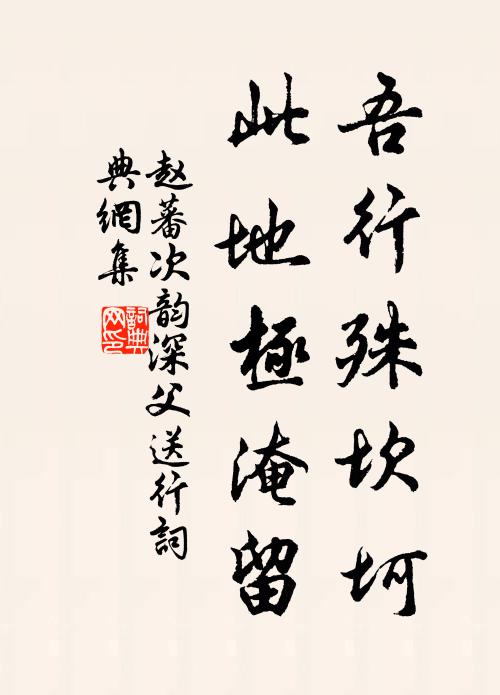 吾行殊坎坷
此地極淹留
赵蕃次韵深父送行詞
典網集
詞典网印